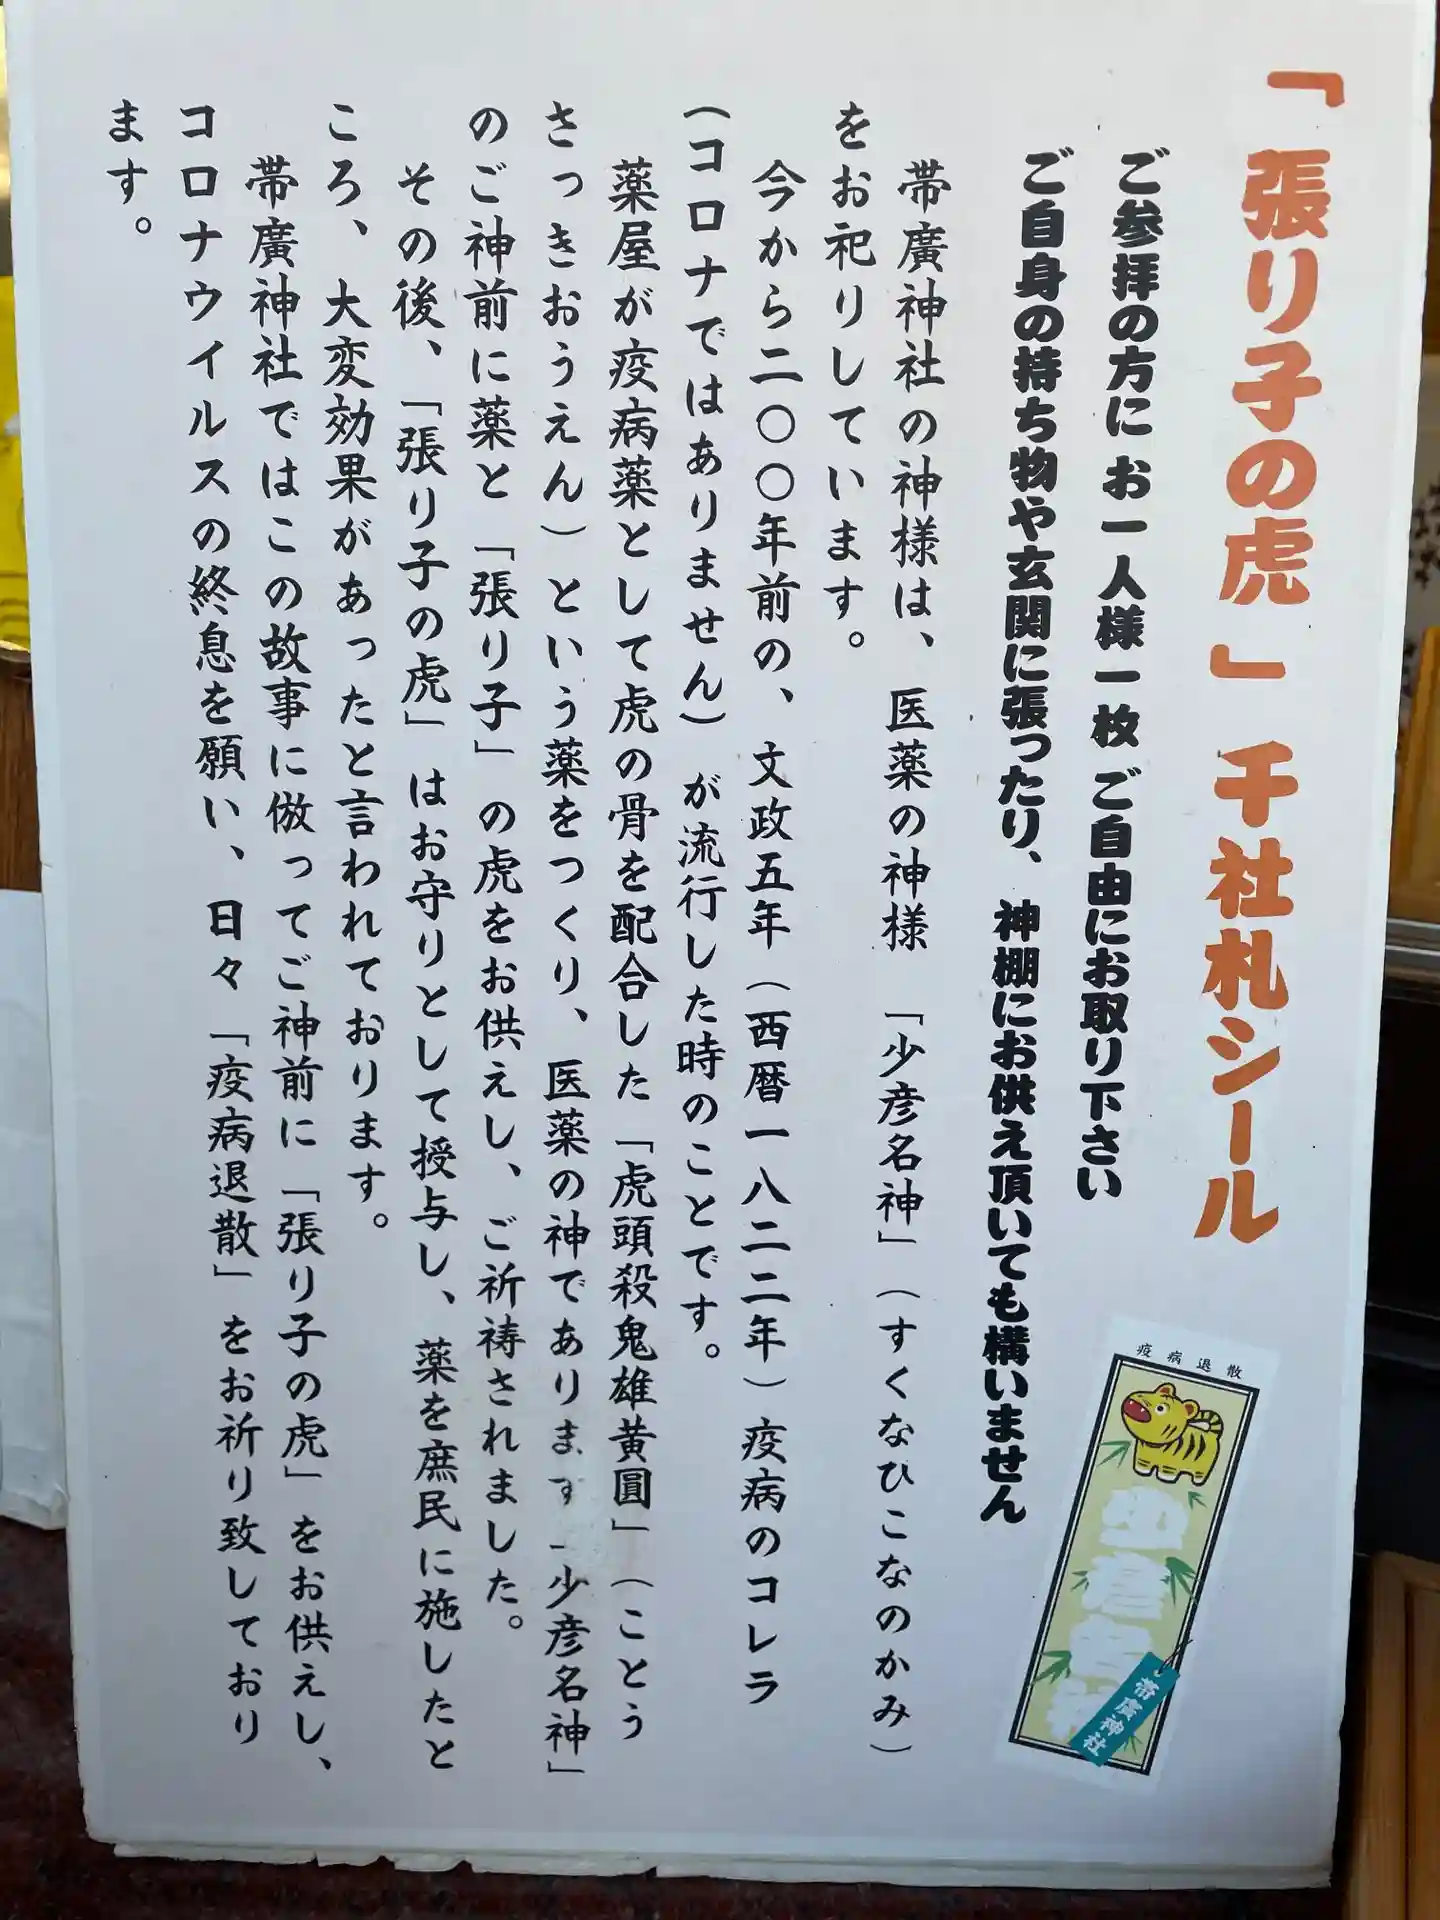 「張り子の虎」千社札シール
ご参拝の方に お一人様一枚 ご自由にお取り下さい
ご自身の持ち物や玄関に張ったり、神棚にお供え頂いても構いません
帯廣神社の神様は、医薬の神様「少彦名神」（すくなひこなのかみ）
をお祀りしています。
今から二〇〇年前の、文政五年（西暦一八二二年）疫病のコレラ
（コロナではありません）が流行した時のことです。
薬屋が疫病薬として虎の骨を配合した「虎頭殺鬼雄黄圓」（ことう
さっきおうえん）という薬をつくり、医薬の神であります「少彦名神」
のご神前に薬と「張り子」の虎をお供えし、ご祈祷されました。
その後、「張り子の虎」はお守りとして授与し、薬を庶民に施したと
ころ、大変効果があったと言われております。
帯廣神社ではこの故事に倣ってご神前に「張り子の虎」をお供えし、
コロナウイルスの終息を願い、日々「疫病退散」をお祈り致しており
ます。
疫病退散
少彦名神
帯廣神社